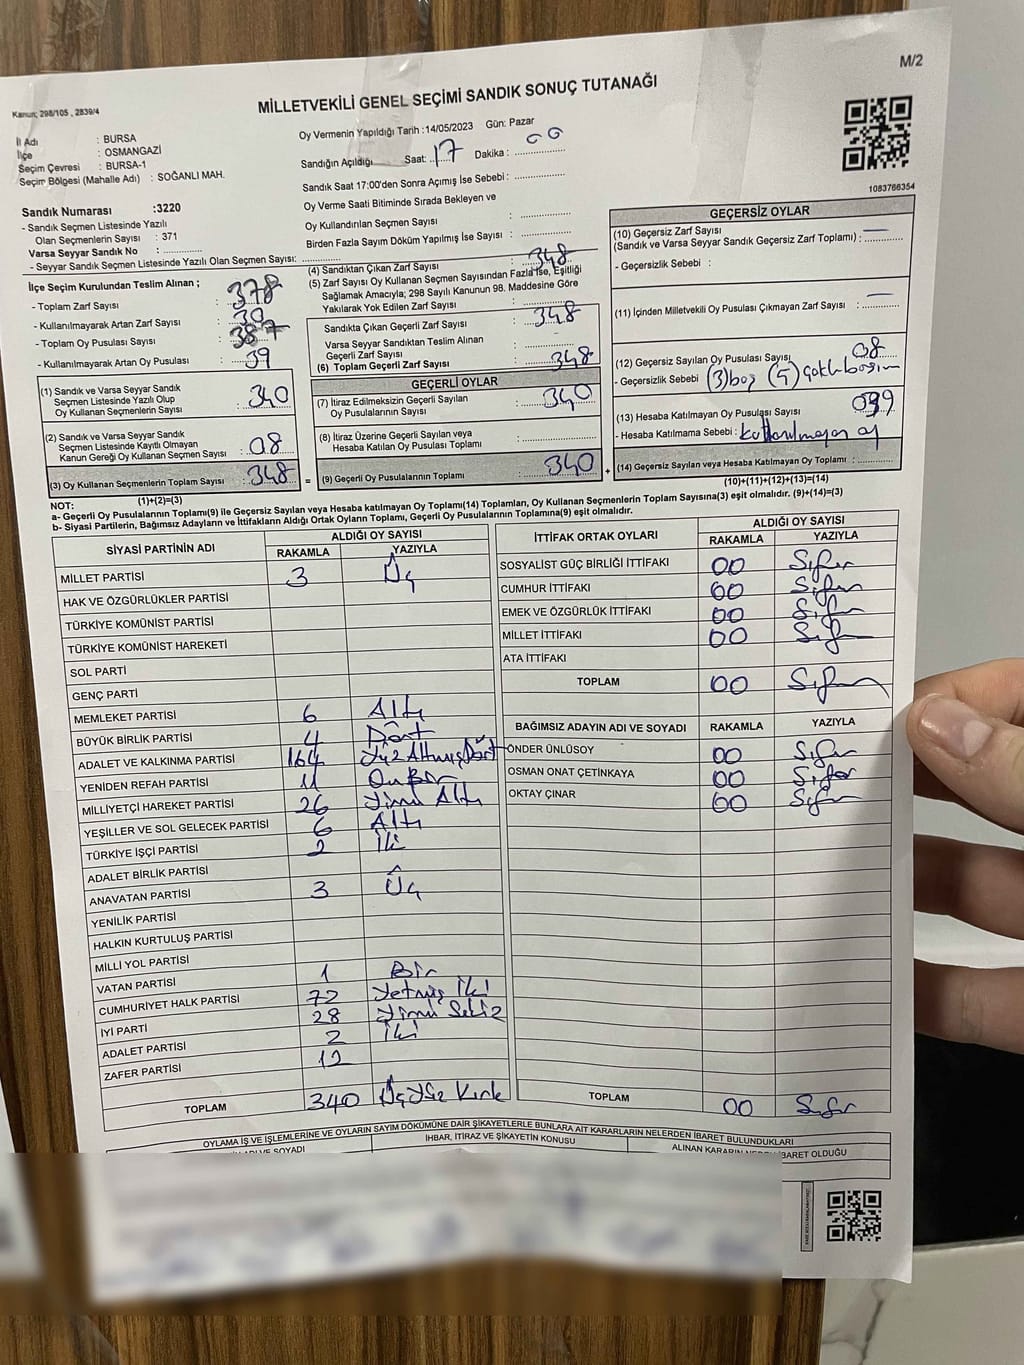 M/2
Kanun; 298/105 , 2839/4
MİLLETVEKİLİ GENEL SEÇİMİ SANDIK SONUÇ TUTANAĞI
İl Adı : BURSA
İlçe : OSMANGAZİ
Seçim Çevresi : BURSA-1
Seçim Bölgesi (Mahalle Adı) : SOĞANLI MAH.
Oy Vermenin Yapıldığı Tarih :14/05/2023 Gün: Pazar
Sandığın Açıldığı Saat: 17 Dakika : 00
Sandık Saat 17:00'den Sonra Açımış İse Sebebi :
Oy Verme Saati Bitiminde Sırada Bekleyen ve
Oy Kullandırılan Seçmen Sayısı :
Birden Fazla Sayım Döküm Yapılmış İse Sayısı :
1083766354
Sandık Numarası :3220
- Sandık Seçmen Listesinde Yazılı
Olan Seçmenlerin Sayısı : 371
Varsa Seyyar Sandık No :
- Seyyar Sandık Seçmen Listesinde Yazılı Olan Seçmen Sayısı:
İlçe Seçim Kurulundan Teslim Alınan ;
- Toplam Zarf Sayısı : 378
- Kullanılmayarak Artan Zarf Sayısı : 30
- Toplam Oy Pusulası Sayısı : 387
- Kullanılmayarak Artan Oy Pusulası : 39
(1) Sandık ve Varsa Seyyar Sandık
Seçmen Listesinde Yazılı Olup
Oy Kullanan Seçmenlerin Sayısı : 340
(2) Sandık ve Varsa Seyyar Sandık
Seçmen Listesinde Kayıtlı Olmayan
Kanun Gereği Oy Kullanan Seçmen Sayısı : 08
(3) Oy Kullanan Seçmenlerin Toplam Sayısı : 348
(1)+(2)=(3)
(4) Sandıktan Çıkan Zarf Sayısı : 348
(5) Zarf Sayısı Oy Kullanan Seçmen Sayısından Fazla İse, Eşitliği
Sağlamak Amacıyla; 298 Sayılı Kanunun 98. Maddesine Göre
Yakılarak Yok Edilen Zarf Sayısı :
Sandıkta Çıkan Geçerli Zarf Sayısı : 348
Varsa Seyyar Sandıktan Teslim Alınan
Geçerli Zarf Sayısı :
(6) Toplam Geçerli Zarf Sayısı : 348
GEÇERLİ OYLAR
(7) İtiraz Edilmeksizin Geçerli Sayılan
Oy Pusulalarının Sayısı : 340
(8) İtiraz Üzerine Geçerli Sayılan veya
Hesaba Katılan Oy Pusulası Toplamı :
(9) Geçerli Oy Pusulalarının Toplamı : 340
GEÇERSİZ OYLAR
(10) Geçersiz Zarf Sayısı
(Sandık ve Varsa Seyyar Sandık Geçersiz Zarf Toplamı) : —
- Geçersizlik Sebebi :
(11) İçinden Milletvekili Oy Pusulası Çıkmayan Zarf Sayısı : —
(12) Geçersiz Sayılan Oy Pusulası Sayısı : 08
- Geçersizlik Sebebi : (3) boş (5)
(13) Hesaba Katılmayan Oy Pusulası Sayısı
- Hesaba Katılmama Sebebi : kullanılmayan oy
(14) Geçersiz Sayılan veya Hesaba Katılmayan Oy Toplamı :
(10)+(11)+(12)+(13)=(14)
NOT:
a- Geçerli Oy Pusulalarının Toplamı(9) ile Geçersiz Sayılan veya Hesaba katılmayan Oy Toplamı(14) Toplamları, Oy Kullanan Seçmenlerin Toplam Sayısına(3) eşit olmalıdır. (9)+(14)=(3)
b- Siyasi Partilerin, Bağımsız Adayların ve İttifakların Aldığı Ortak Oyların Toplamı, Geçerli Oy Pusulalarının Toplamına(9) eşit olmalıdır.
SİYASİ PARTİNİN ADI ALDIĞI OY SAYISI
RAKAMLA YAZIYLA
MİLLET PARTİSİ 3 Üç
HAK VE ÖZGÜRLÜKLER PARTİSİ
TÜRKİYE KOMÜNİST PARTİSİ
TÜRKİYE KOMÜNİST HAREKETİ
SOL PARTİ
GENÇ PARTİ
MEMLEKET PARTİSİ 6 Altı
BÜYÜK BİRLİK PARTİSİ 4 Dört
ADALET VE KALKINMA PARTİSİ 164 Yüz Altmış Dört
YENİDEN REFAH PARTİSİ 11 On Bir
MİLLİYETÇİ HAREKET PARTİSİ 26 Yirmi Altı
YEŞİLLER VE SOL GELECEK PARTİSİ 6 Altı
TÜRKİYE İŞÇİ PARTİSİ 2 İki
ADALET BİRLİK PARTİSİ
ANAVATAN PARTİSİ 3 Üç
YENİLİK PARTİSİ
HALKIN KURTULUŞ PARTİSİ
MİLLİ YOL PARTİSİ
VATAN PARTİSİ 1 Bir
CUMHURİYET HALK PARTİSİ 72 Yetmiş İki
İYİ PARTİ 28 Yirmi Sekiz
ADALET PARTİSİ 2 İki
ZAFER PARTİSİ 12
TOPLAM 340 Üç Yüz Kırk
İTTİFAK ORTAK OYLARI ALDIĞI OY SAYISI
RAKAMLA YAZIYLA
SOSYALİST GÜÇ BİRLİĞİ İTTİFAKI 00 Sıfır
CUMHUR İTTİFAKI 00 Sıfır
EMEK VE ÖZGÜRLÜK İTTİFAKI 00 Sıfır
MİLLET İTTİFAKI 00 Sıfır
ATA İTTİFAKI
TOPLAM 00 Sıfır
BAĞIMSIZ ADAYIN ADI VE SOYADI RAKAMLA YAZIYLA
ÖNDER ÜNLÜSOY 00 Sıfır
OSMAN ONAT ÇETİNKAYA 00 Sıfır
OKTAY ÇINAR 00 Sıfır
TOPLAM 00 Sıfır
OYLAMA İŞ VE İŞLEMLERİNE VE OYLARIN SAYIM DÖKÜMÜNE DAİR ŞİKAYETLERLE BUNLARA AİT KARARLARIN NELERDEN İBARET BULUNDUKLARI
İHBAR, İTİRAZ VE ŞİKAYETİN KONUSU